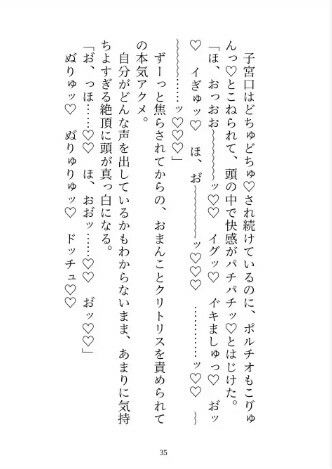 子宮口はどちゅどちゅ♡され続けているのに、ポルチオもこりゅ
んっ♡とこねられて、頭の中で快感がパチパチッ♡とはじけた。
「ほ、おっおお～～～～ッ♡♡　イグッ♡　イ゙キましゅっ♡　お゙ッ
♡　イぎゅッ♡　ほ、お゙～～～～～ッ♡♡♡　…………ッ♡♡　～
～～～～……ッ♡♡♡」
　ずーっと焦らされてからの、おまんことクリトリスを責められて
の本気アクメ。
　自分がどんな声を出しているかもわからないまま、あまりに気持
ちよすぎる絶頂に頭が真っ白になる。
「お゙、っほ……♡♡　ほ、おお゙ッ……♡♡　お゙ッ♡♡」
　ぬりゅッ♡　ぬりゅりゅッ♡　ドッチュ♡♡
35